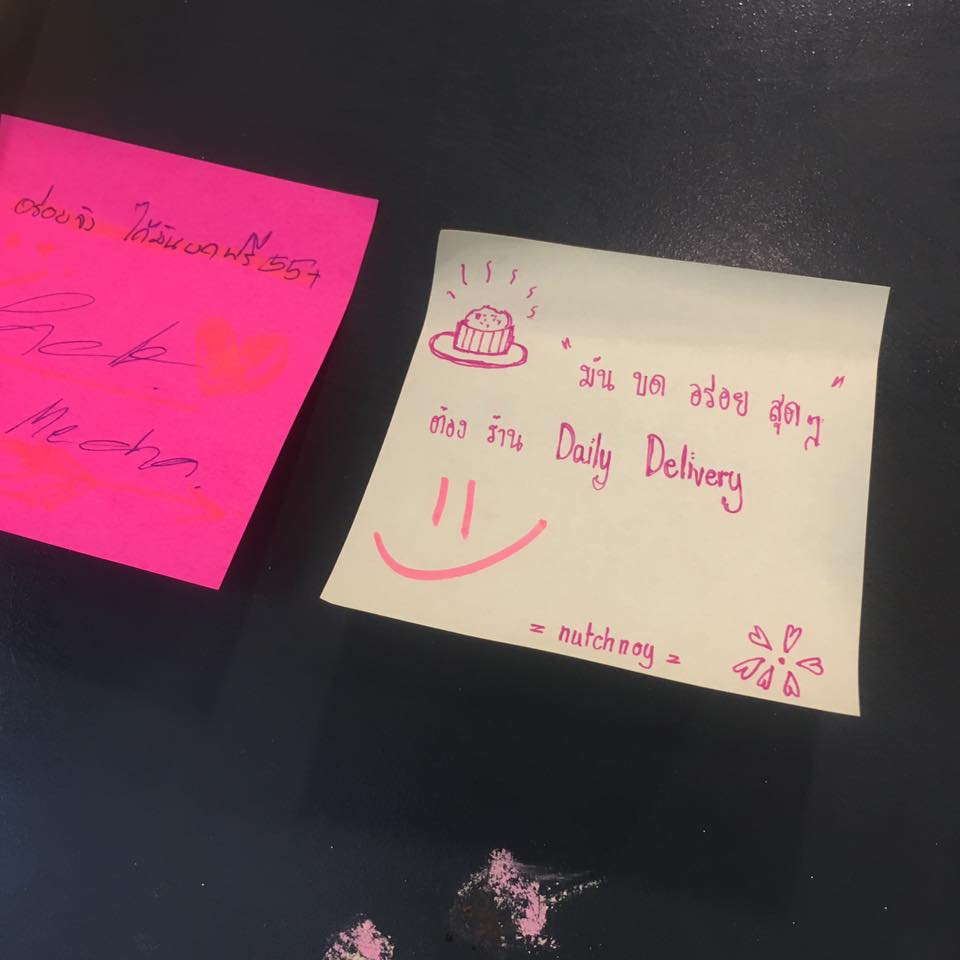 อร่อยจัง ได้มันบดฟรี 55+
Mecha.
"มัน บด อร่อย สุดๆ"
ต้อง ร้าน Daily Delivery
= nutchnoy =